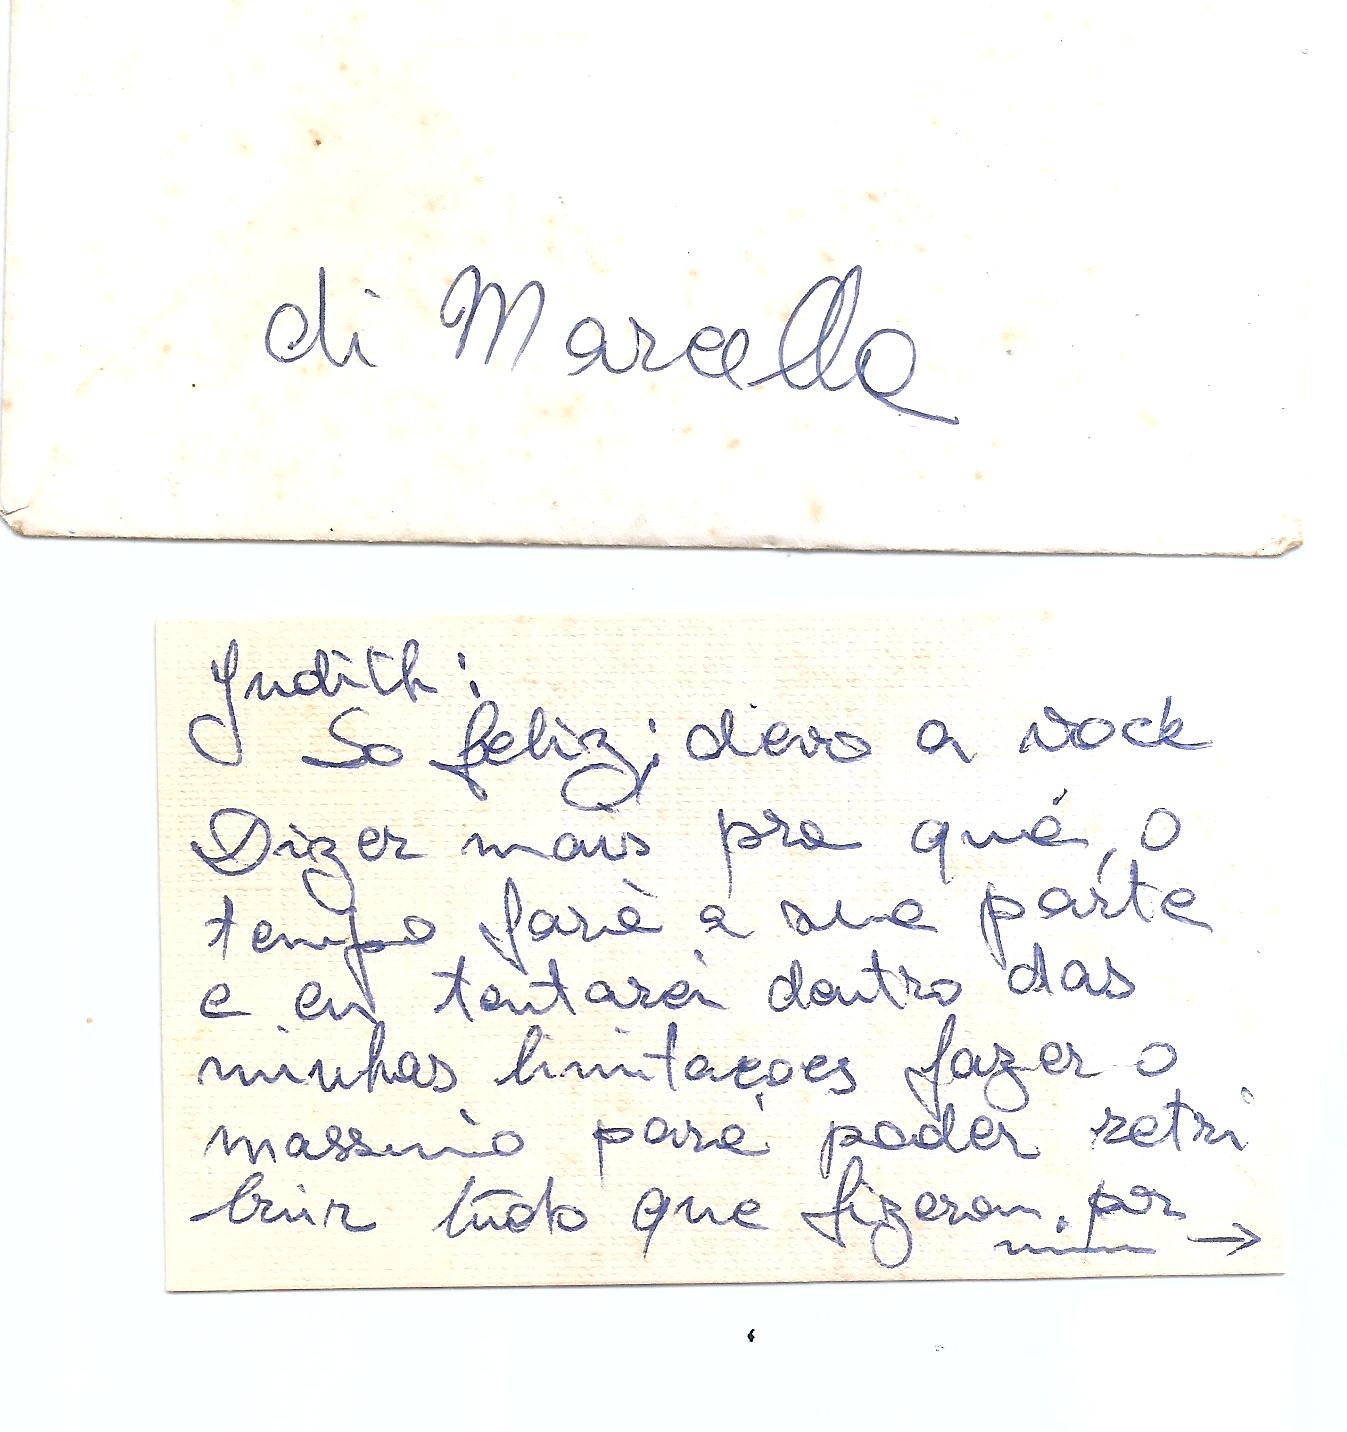 di Marcello
Judith:
So feliz; devo a você
Dizer mais pra quê, o
tempo farà a sua parte
e eu tentarei dentro das
minhas limitaçoes fazer o
massimo para poder retri
buir tudo que fizeram. por
mim →